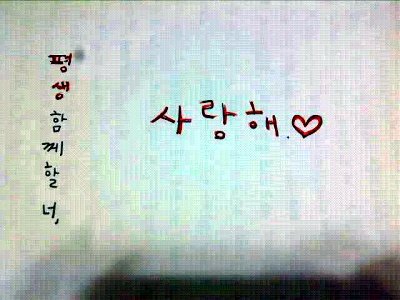 평생 함께할 너,
사랑해.♡